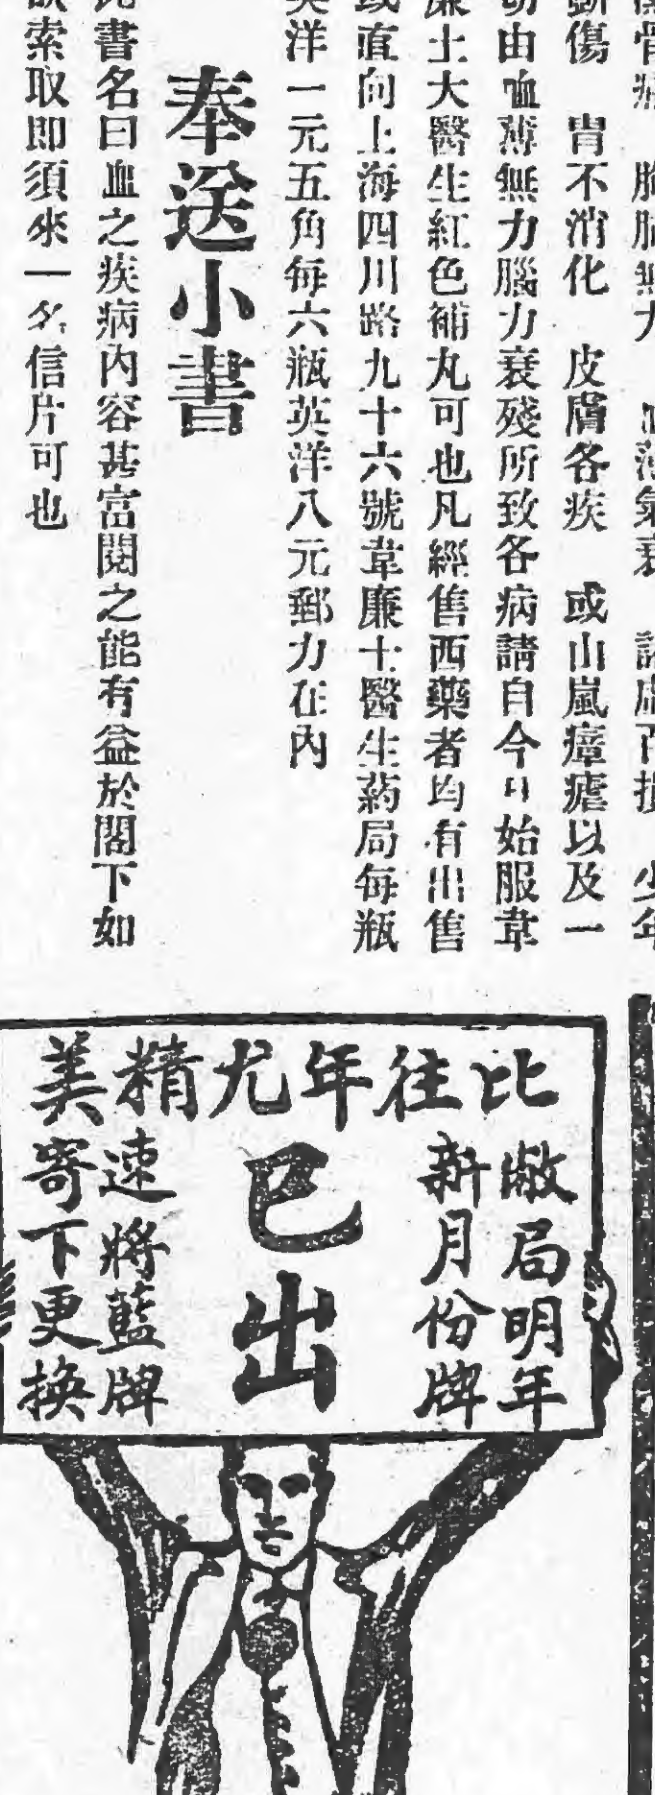 胃不消化 皮膚各疾 或山嵐瘴瘧以及一
切由血薄無力腦力衰殘所致各病請自今日始服韋
廉士大醫生紅色補丸可也凡經售西藥者均有出售
或直向上海四川路九十六號韋廉士醫生葯局每瓶
英洋一元五角每六瓶英洋八元郵力在內
奉送小書
此書名曰血之疾病內容甚富閱之能有益於閣下如
欲索取即須來一名信片可也
比往年尤精美
敝局明年
新月份牌
已出
速將藍牌
寄下更換